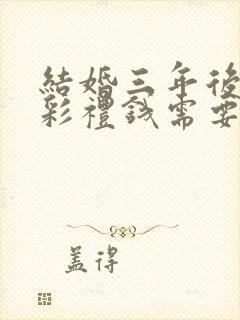 結婚三年後
彩禮錢需要
盖得